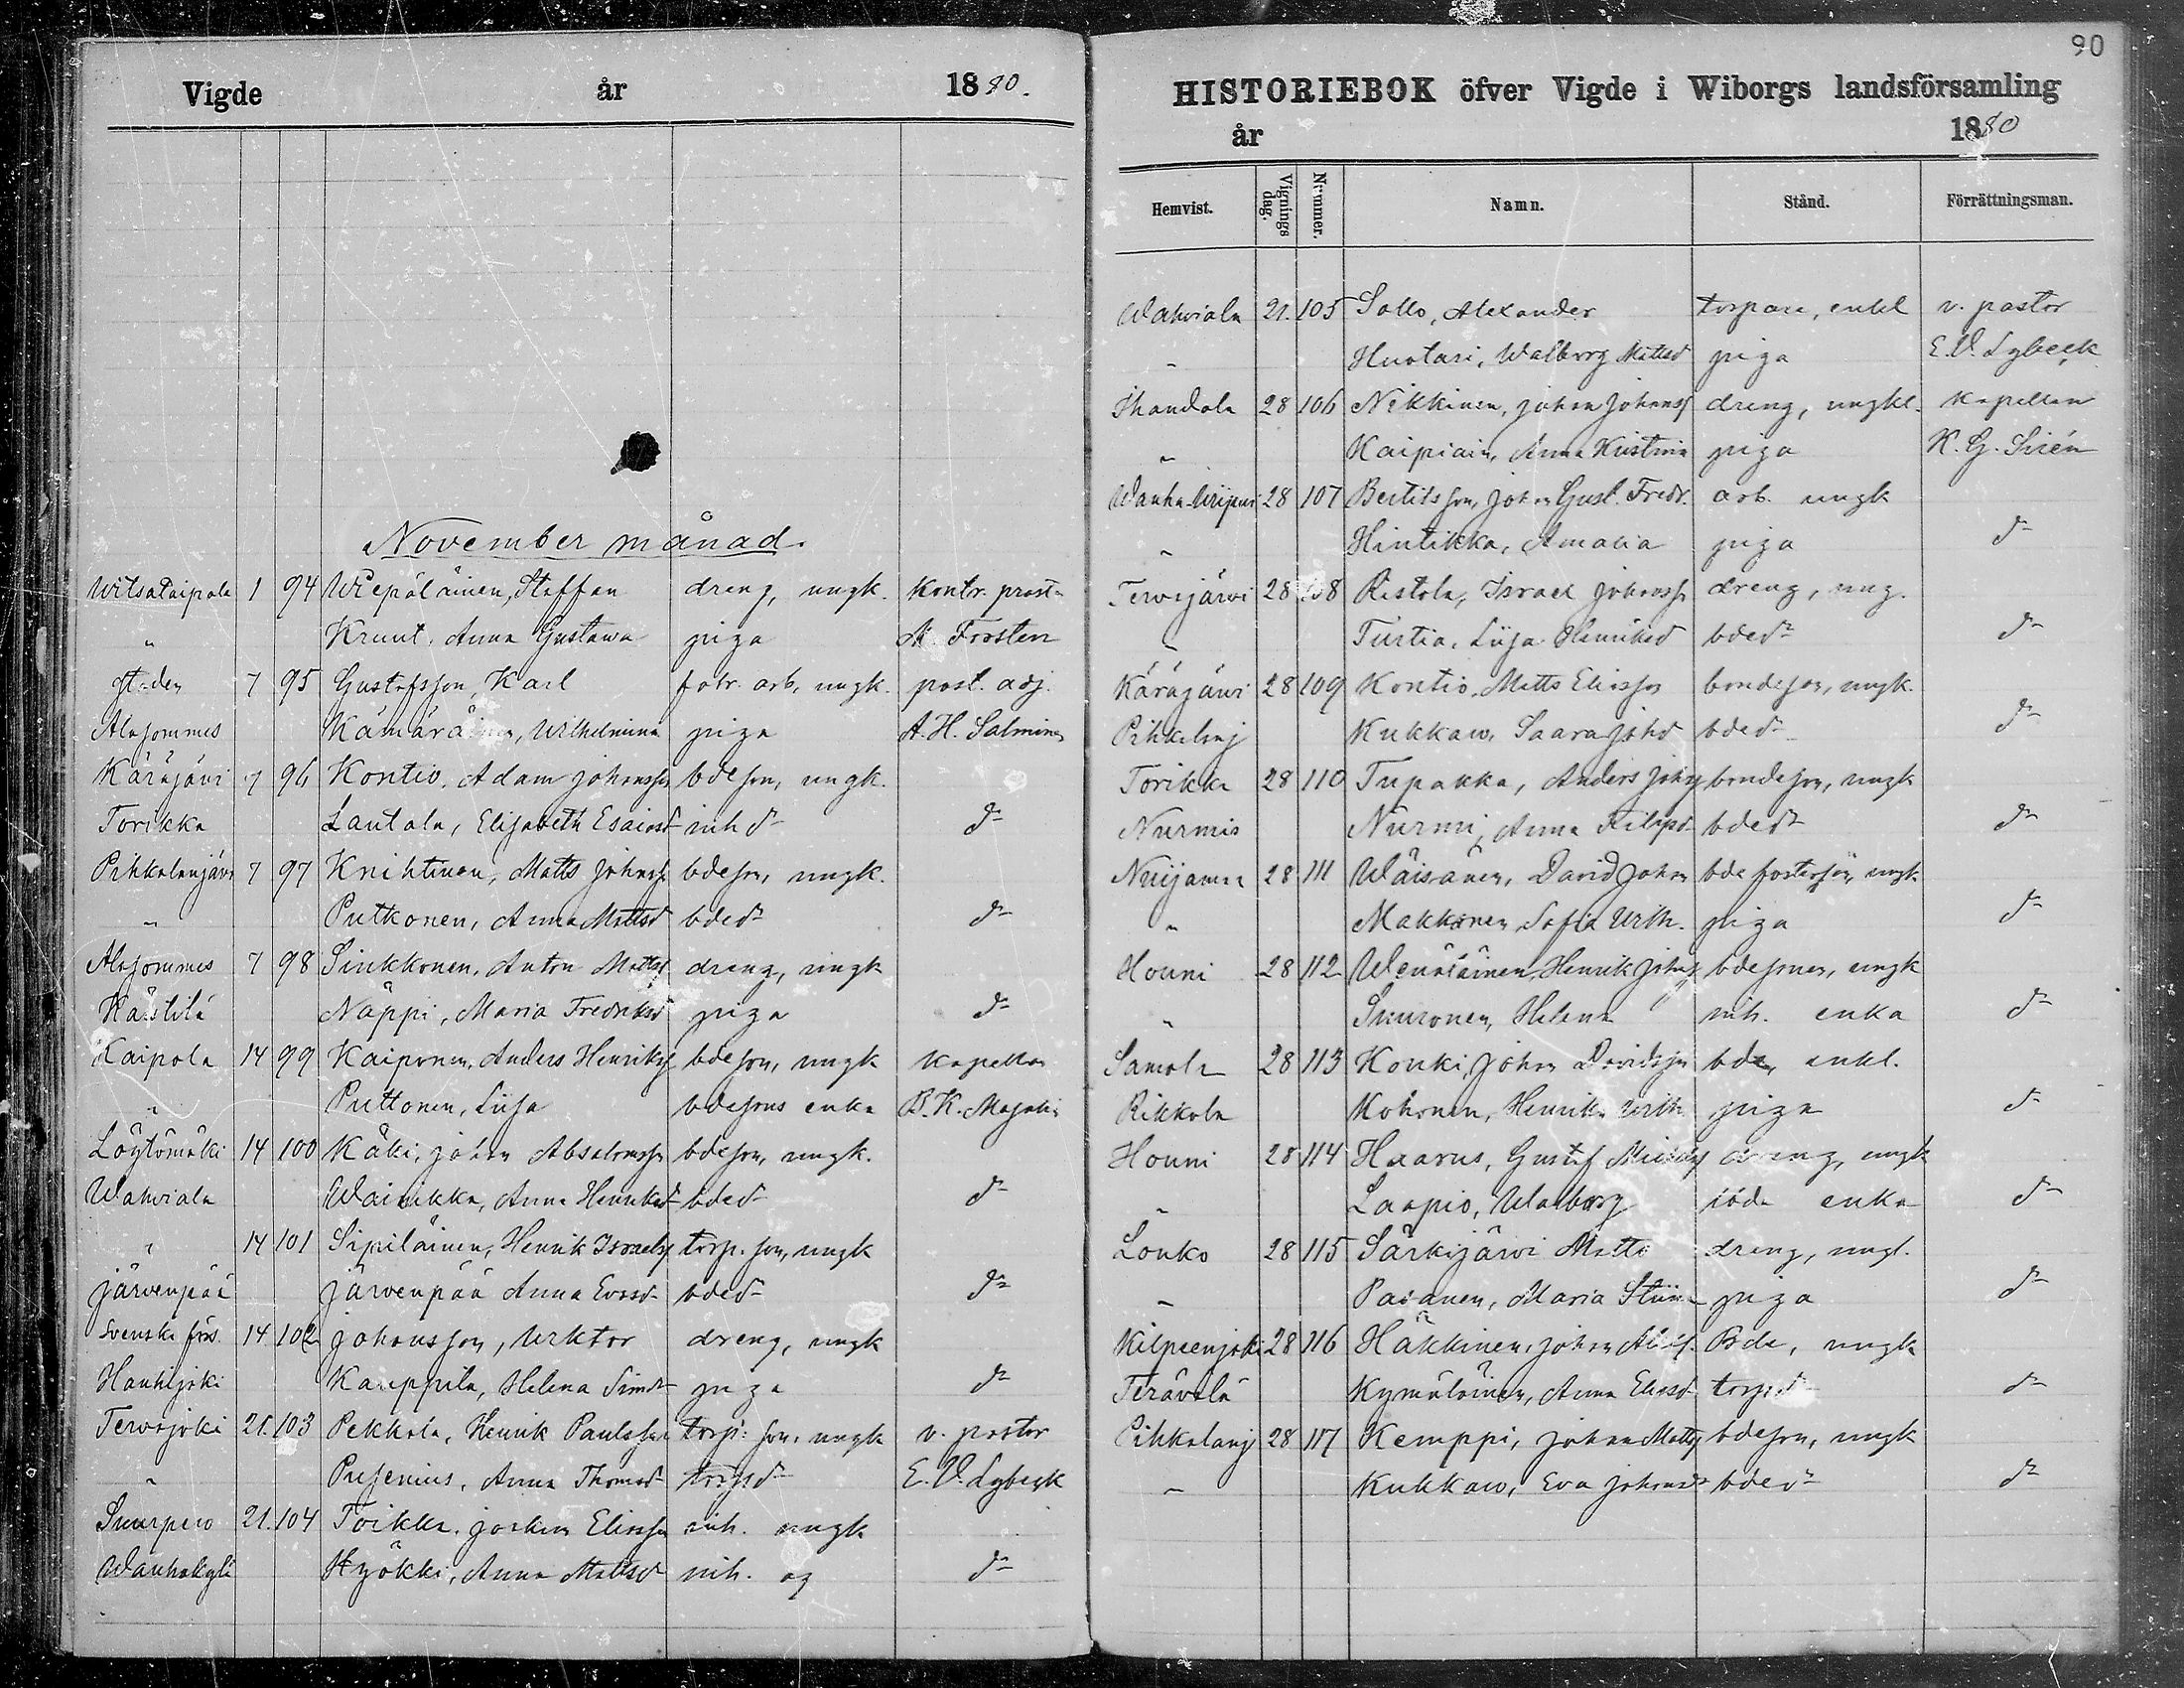 Vigde år 1880.
November månad.
Witsataipale 1 94 Wiepäläinen, Staffan dreng, ungk. kontr. prost
" Krunt, Anna Gustawa piga M. Frosten
Staden 7 95 Gustafsson, Karl fabr. arb. ungk. past. adj.
Alasommes Kämäräinen, Wilhelmina piga A. H. Salminen
Käräjärvi 7 96 Kontio, Adam Johansson bdeson, ungk.
Torikka Lautala, Elisabeth Esaiasd inh d:r d:o
Pihkalanjärvi 7 97 Knihtinen, Matts Johanss bdeson, ungk.
" Putkonen, Anna Mattsd bded:r d:o
Alasommes 7 98 Sinkkonen, Anton Mattss dreng, ungk
Kärstilä Näppi, Maria Fredriksd piga d:o
Kaipola 14 99 Kaiponen, Anders Henrikss bdeson, ungk kapellan
" Puttonen, Liisa bdesons enka B. K.
Löytömäki 14 100 Käki, Johan Absalonsson bdeson, ungk.
Wahviala Wainikka, Anna Henriksd bded:r d:o
" 14 101 Sipiläinen, Henrik Israelss torp. son, ungk
Järvenpää Järvenpää Anna Evasd bded:r d:o
Svenska förs. 14 102 Johansson, Wiktor dreng, ungk
Hanhijoki Kauppila, Helena Simd:r piga d:o
Tervajoki 21. 103 Pekkola, Henrik Paulsson torp: son, ungk v. pastor
" Pusenius, Anna Thomasd torpd:r E. V. Lybeck
Suurpero 21. 104 Toikka, Joakim Eliasson inh. ungk
Wanhakylä Hyökki, Anna Mattsd inh. og d:o
90
HISTORIEBOK öfver Vigde i Wiborgs landsförsamling
år 1880
Hemvist. Vignings dag. Nummer. Namn. Stånd. Förrättningsman.
Wahviala 21. 105 Sallo, Alexander torpare, enkl v. pastor
" Huotari, Walborg Mattsd piga E. V. Lybeck
Ihandala 28 106 Nikkinen, Johan Johanss dreng, ungkl. kapellan
" Kaipiain, Anna Kristina piga K. G. Sirén
Wanha-Wiipuri 28 107 Bertilsson, Johan Gust. Fredr. arb. ungk
" Hintikka, Amalia piga d:o
Tervejärvi 28 108 Ristola, Israel Johanss dreng, ung.
" Turtia, Liisa Henriksd bded:r d:o
Käräjärvi 28 109 Kontio, Matts Eliasson bondeson, ungk.
Pihkalanj Kukkaro, Saara Johd bded:r d:o
Torikka 28 110 Tupakka, Anders Johss bondeson, ungk
Nurmis Nurmi, Anna Filipsd bded:r d:o
Nuijamaa 28 111 Wäisänen, David Johan bde fosterson, ungk
" Makkonen Sofia Wilh. piga d:o
Houni 28 112 Wenäläinen, Henrik Johss bdesson, ungk
" Suuronen, Helena inh. enka d:o
Samola 28 113 Konki, Johan Davidsson bde, enkl.
Rikkola Kohonen, Henrika Wilh. piga d:o
Houni 28 114 Haarus, Gustaf dreng, ungk
" Laapio, Walborg enka d:o
Louko 28 115 Särkijärvi Matts dreng, ungk.
" Paianen, Maria Stiina piga d:o
Kilpeenjoki 28 116 Häkkinen, Johan Bde, ungk
Terävälä Kymäläinen, Anna Eliasd torpd:r d:o
Pihkalanj 28 117 Kemppi, Johan Matss bdeson, ungk
" Kukkaro, Eva Johansd:r bded:r d:o